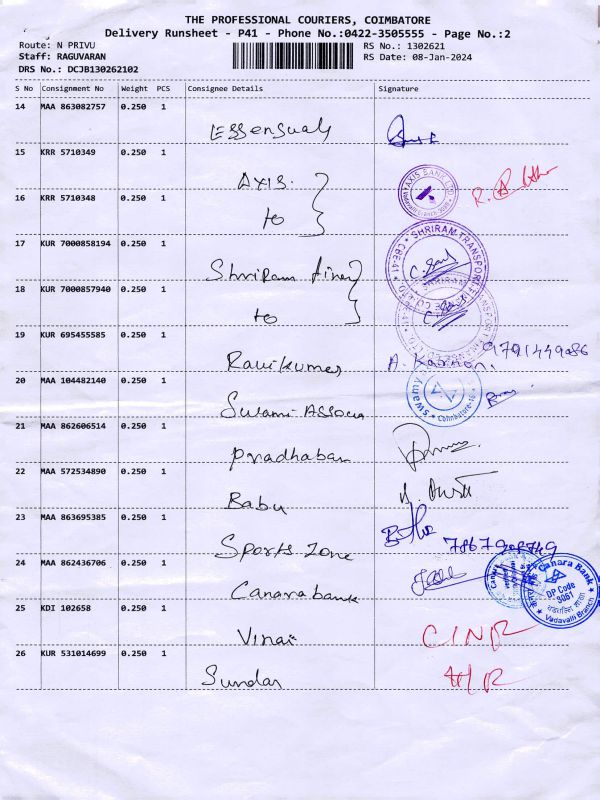 THE PROFESSIONAL COURIERS, COIMBATORE
Delivery Runsheet - P41 - Phone No.:0422-3505555 - Page No.:2
Route: N PRIVU RS No.: 1302621
Staff: RAGUVARAN RS Date: 08-Jan-2024
DRS No.: DCJB130262102
S No Consignment No Weight PCS Consignee Details Signature
14 MAA 863082757 0.250 1
Essensuals
15 KRR 5710349 0.250 1
Axis AXIS BANK LTD
16 KRR 5710348 0.250 1
to
17 KUR 7000858194 0.250 1
Shriram SHRIRAM TRANSPORT CBE41
18 KUR 7000857940 0.250 1
to
19 KUR 695455585 0.250 1
Ravikumar A. Kannan.
20 MAA 104482140 0.250 1
Swami Associa SWAMY Coimbatore
21 MAA 862606514 0.250 1
Pradhaban
22 MAA 572534890 0.250 1
Babu
23 MAA 863695385 0.250 1
Sports zone
24 MAA 862436706 0.250 1
Canara bank Canara Bank DP Code 3061 Vadavalli Branch
25 KDI 102658 0.250 1
Vinai
26 KUR 531014699 0.250 1
Sundar